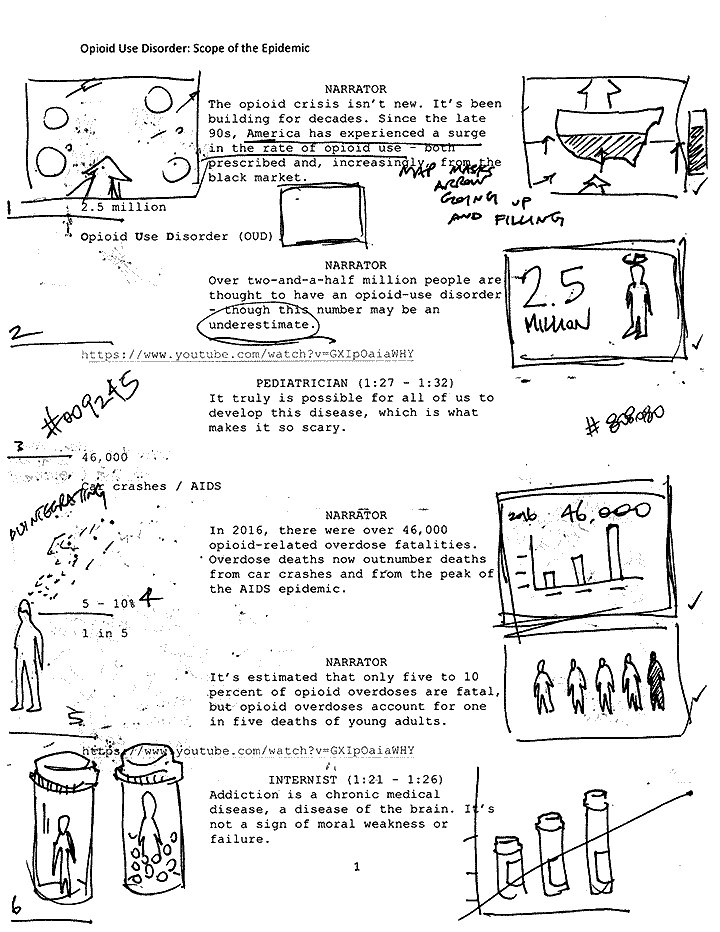 Opioid Use Disorder: Scope of the Epidemic
NARRATOR
The opioid crisis isn't new. It's been
building for decades. Since the late
90s, America has experienced a surge
in the rate of opioid use – both
prescribed and, increasingly, from the
black market.
MAP MASKS
ARROW
GOING UP
AND FILLING
1
2.5 million
Opioid Use Disorder (OUD)
NARRATOR
Over two-and-a-half million people are
thought to have an opioid-use disorder
– though this number may be an
underestimate.
2.5
MILLION
2
https://www.youtube.com/watch?v=GXIpOaiaWHY
PEDIATRICIAN (1:27 – 1:32)
It truly is possible for all of us to
develop this disease, which is what
makes it so scary.
#009245
#808080
3
46,000
Car crashes / AIDS
DISINTEGRATING
NARRATOR
In 2016, there were over 46,000
opioid-related overdose fatalities.
Overdose deaths now outnumber deaths
from car crashes and from the peak of
the AIDS epidemic.
2016 46,000
5 – 10%
4
1 in 5
NARRATOR
It's estimated that only five to 10
percent of opioid overdoses are fatal,
but opioid overdoses account for one
in five deaths of young adults.
5
https://www.youtube.com/watch?v=GXIpOaiaWHY
INTERNIST (1:21 – 1:26)
Addiction is a chronic medical
disease, a disease of the brain. It's
not a sign of moral weakness or
failure.
1
6